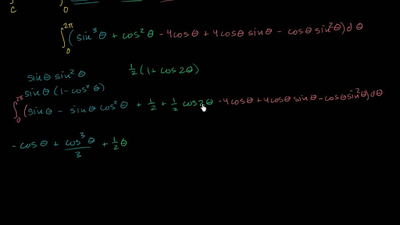 C 0
∫₀^2π (sin³θ + cos²θ - 4cosθ + 4cosθ sinθ - cosθ sin²θ) dθ
sinθ sin²θ ½(1 + cos2θ)
sinθ (1 - cos²θ)
∫₀^2π (sinθ - sinθ cos²θ + ½ + ½ cos2θ - 4cosθ + 4cosθ sinθ - cosθ sin²θ) dθ
- cosθ + cos³θ/3 + ½θ